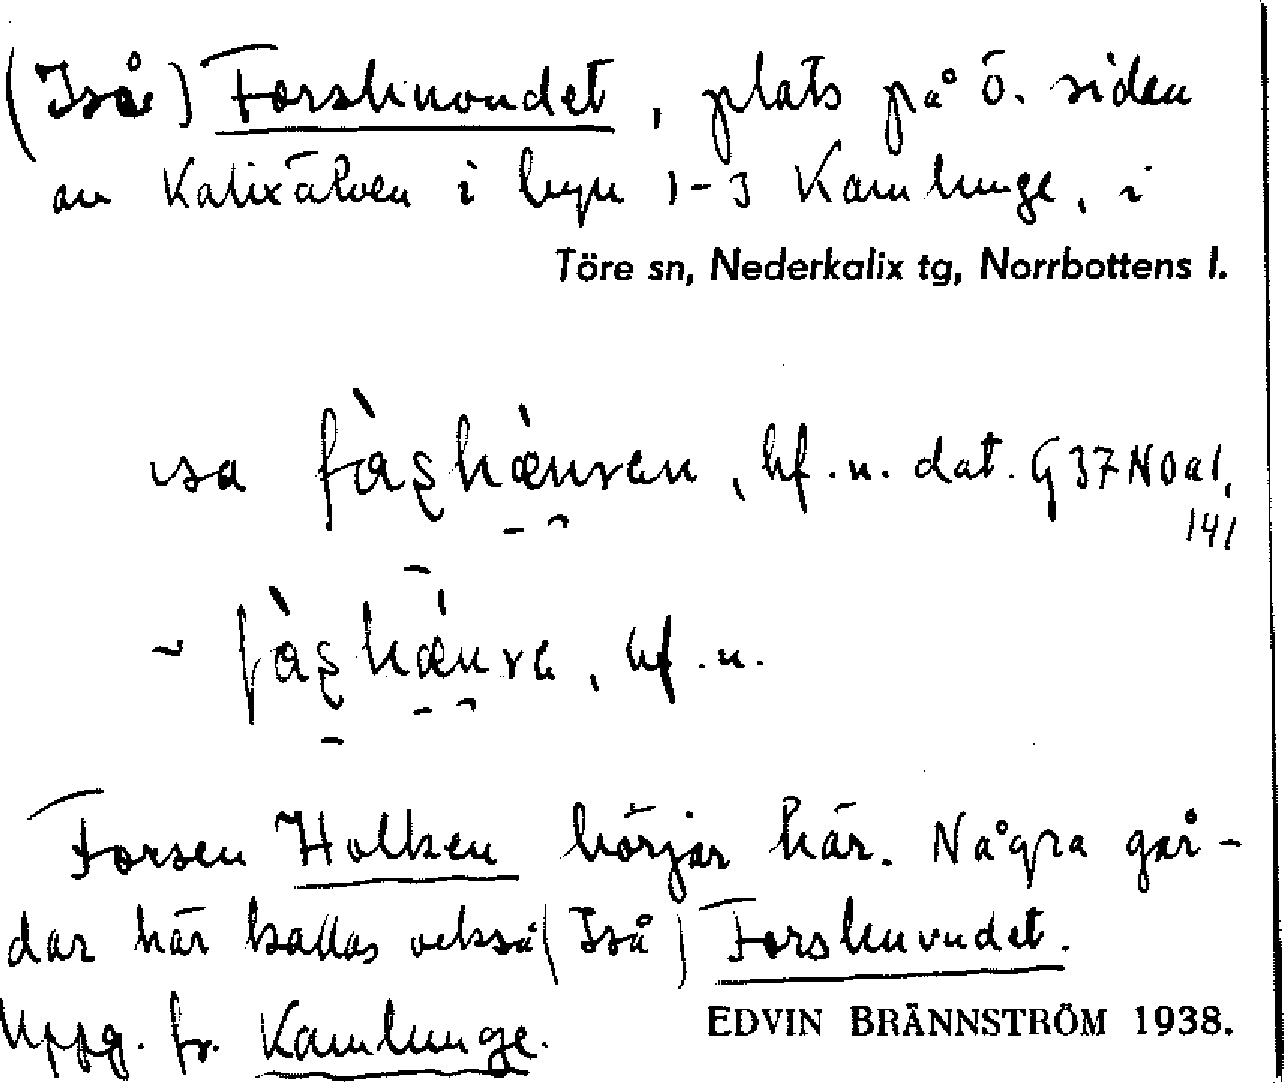 (Iså) Forshuvudet, plats på ö. sidan
av Kalixälven i byn 1-3 Kamlunge, i
Töre sn, Nederkalix tg, Norrbottens l.
isa fàʂhæ̀nvɛn, bf. n. dat. G37NOa1,
141
~ fàʂhæ̀nvɛ, bf. n.
Forsen Holken börjar här. Några går-
dar här kallas också (Iså) Forshuvudet.
Uppg. fr. Kamlunge.
EDVIN BRÄNNSTRÖM 1938.